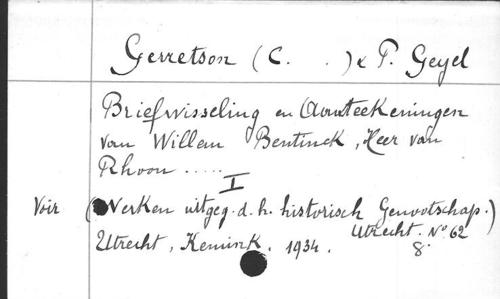 Gerretson (C. . ) & P. Geyel
Briefwisseling en Aanteekeningen
van Willem Bentinck, Heer van
Rhoon .....
I
Voir (Werken uitgeg. d. h. historisch Genootschap.)
Utrecht. No 62
Utrecht, Kemink. 1934. 8.